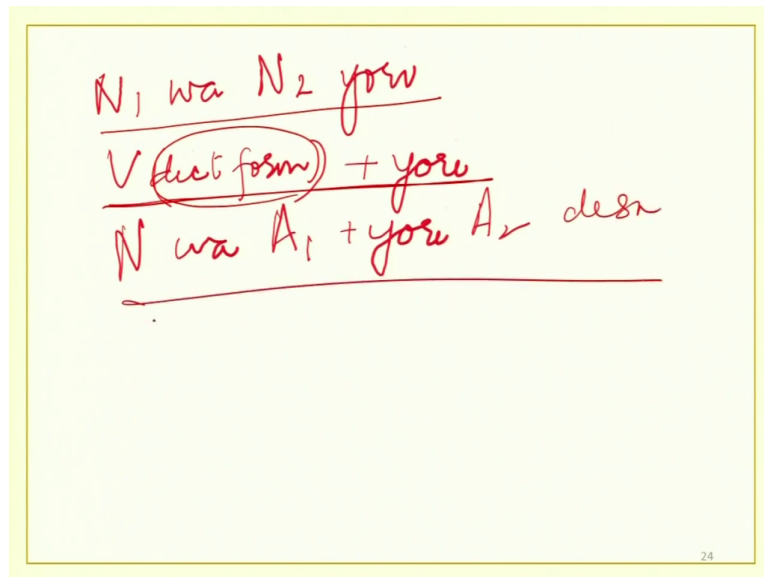 N₁ wa N₂ yori
V (dict form) + yori
N wa A₁ + yori A₂ desu
24